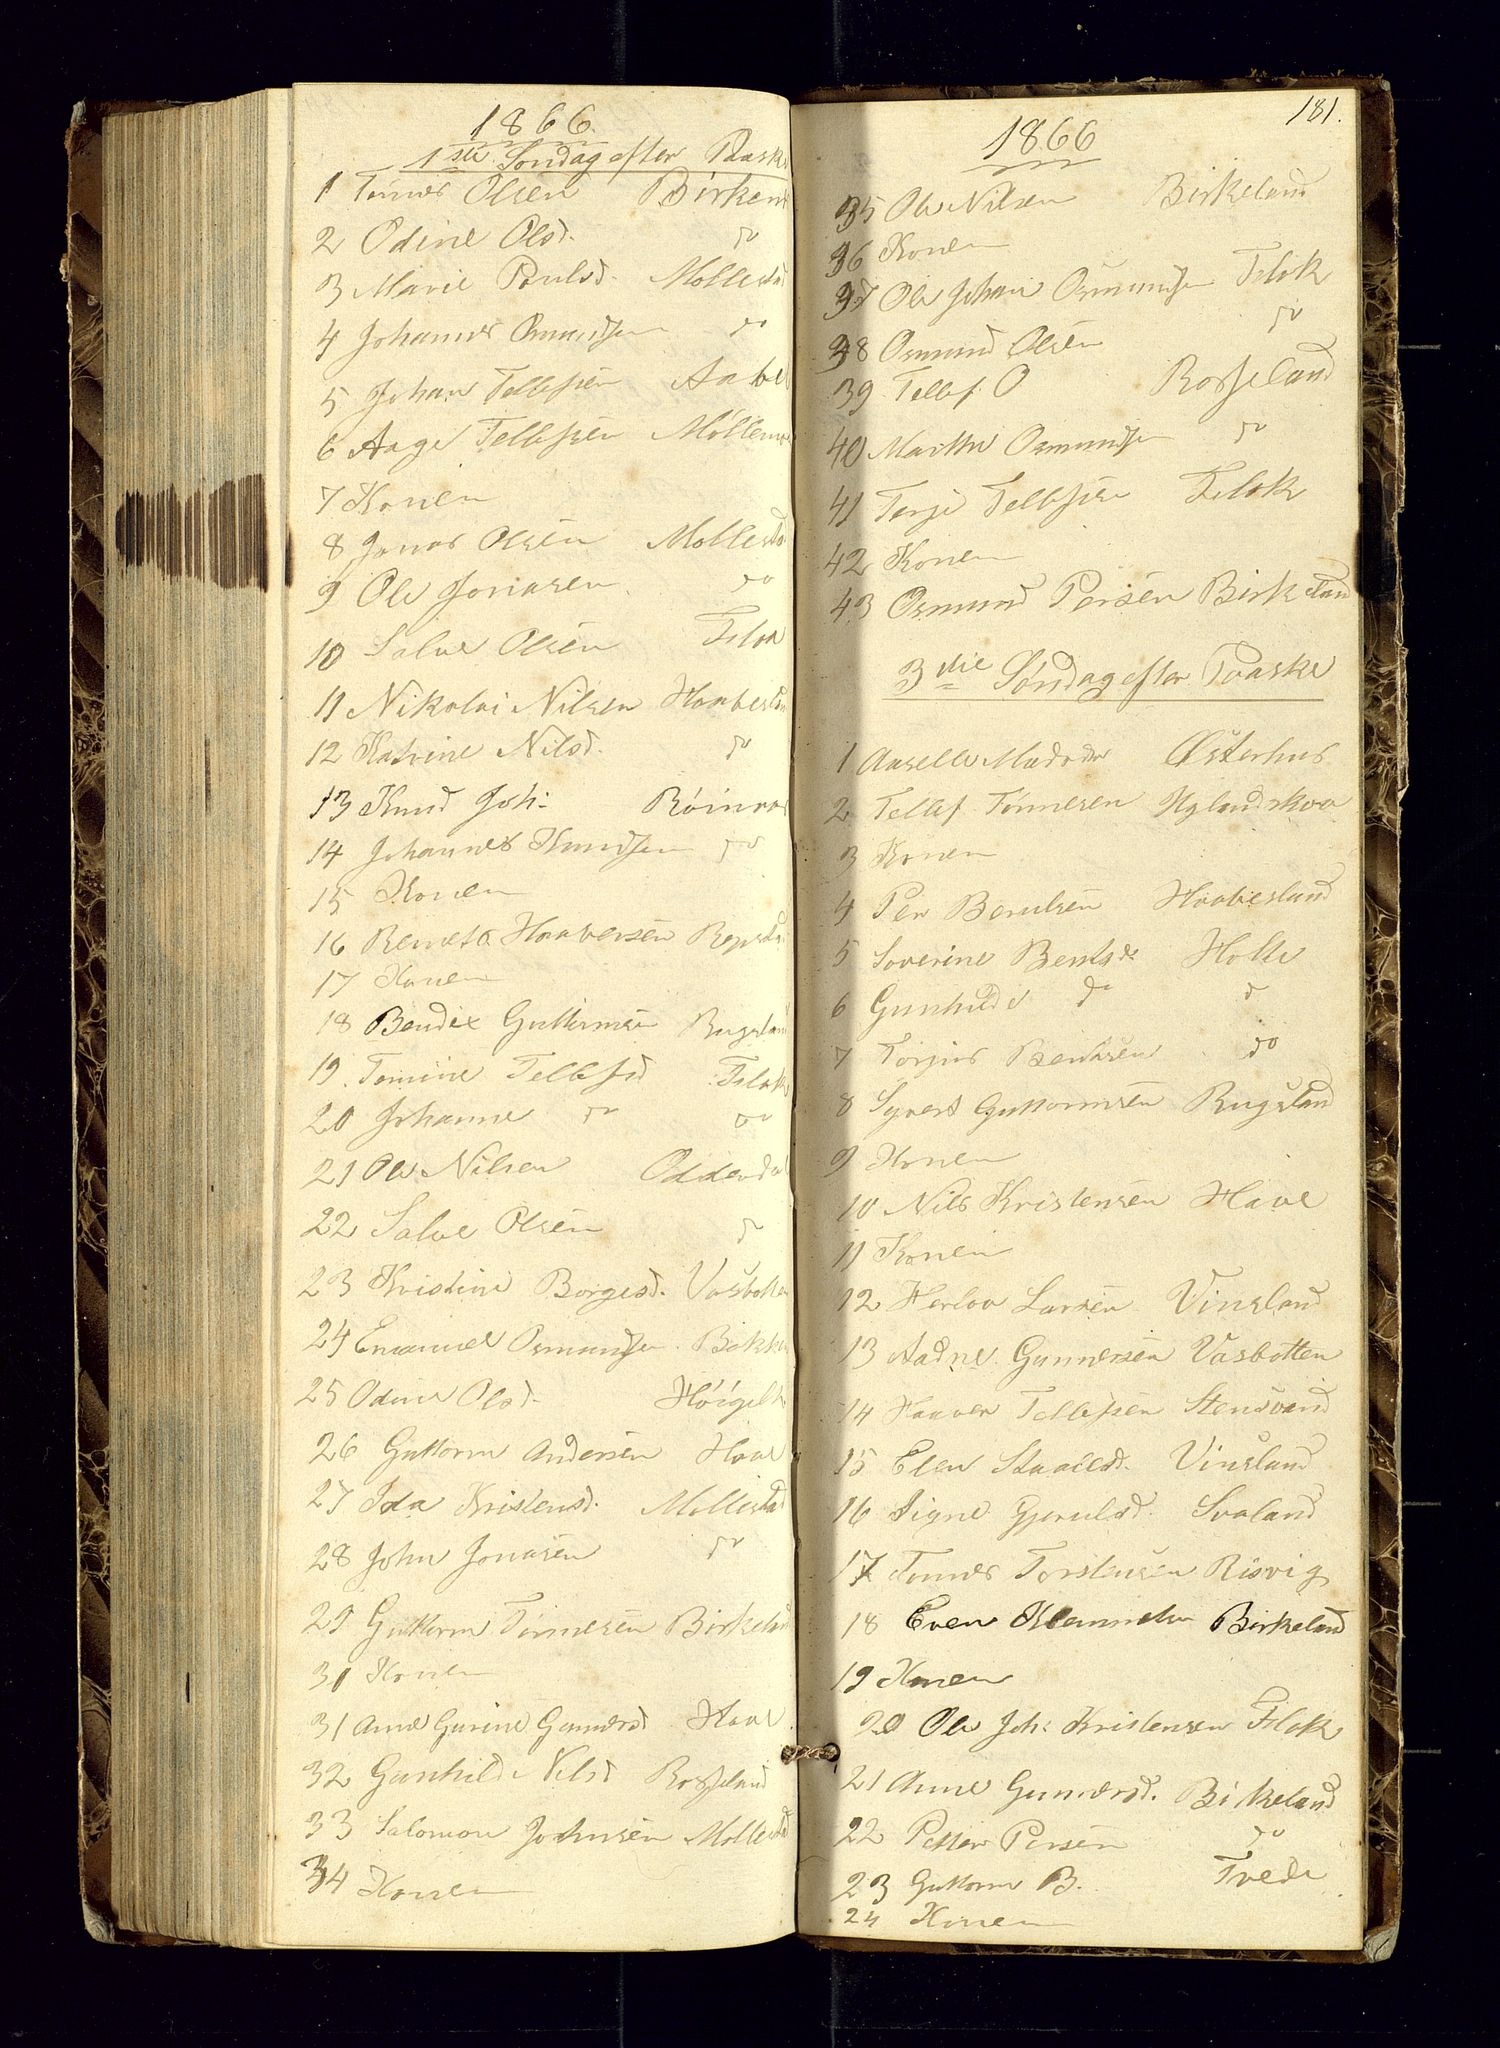 1866.
1ste Søndag efter Paaske
1 Tønnes Olsen Birken
2 Odine Olsd. do
3 Marie Paulsd. Mollestad
4 Johannes Osmundsen do
5 Johan Tellefsen Aabel
6 Aage Tellefsen Møllem
7 Konen
8 Jonas Olsen Mollestad
9 Ole Jonasen do
10 Salve Olsen Flak
11 Nikolai Nilsen Haabesland
12 Katrine Nilsd. do
13 Knud Joh: Röinaas
14 Johannes Knudsen do
15 Konen
16 Haaversen
17 Konen
18 Bendix Guttormsen Rugsland
19 Tomine Tellefsd Flak
20 Johanne do do
21 Ole Nilsen Oddersdal
22 Salve Olsen do
23 Kristine Borgesd. Vasbotten
24 Emanuel Osmundsen Bakken
25 Odine Olsd. Höigilt
26 Guttorm Andersen Haave
27 Ida Kristensd. Mollestad
28 John Jonasen do
29 Guttorm Tönnesen Birkeland
30 Konen
31 Anne Gurine Gunnersd Haave
32 Gunhilde Nilsd Rosseland
33 Salomon Johnsen Mollestad
34 Konen
181.
1866
35 Ole Nilsen Birkeland
36 Konen
37 Ole Johan Osmundsen Flak
38 Osmund Olsen do
39 Tellef O Rosseland
40 Marthe Osmundsen do
41 Terje Tellefsen Flak
42 Konen
43 Osmund Persen Birkeland
3die Søndag efter Paaske
1 Aaselle Madsdr Østerhus
2 Tellef Tönnesen Uglandskaa
3 Konen
4 Per Berulsen Haabesland
5 Soverine Bentsd. Holte
6 Gunhilde do d
7 Torjus Bentsen do
8 Syvert Guttormsen Rugsland
9 Konen
10 Nils Kristensen Haave
11 Konen
12 Herlov Larsen Vinsland
13 Aadne Gunnersen Vasbotten
14 Haaver Tellefsen Stensvand
15 Elen Staalesd. Vinsland
16 Signe Gjerulsd. Svaland
17 Tønnes Torstensen Risvig
18 Even Klemmetsen Birkeland
19 Konen
20 Ole Joh: Kristensen Flak
21 Anne Gunnersd. Birkeland
22 Petter Persen do
23 Guttorm B. Tvede
24 Konen